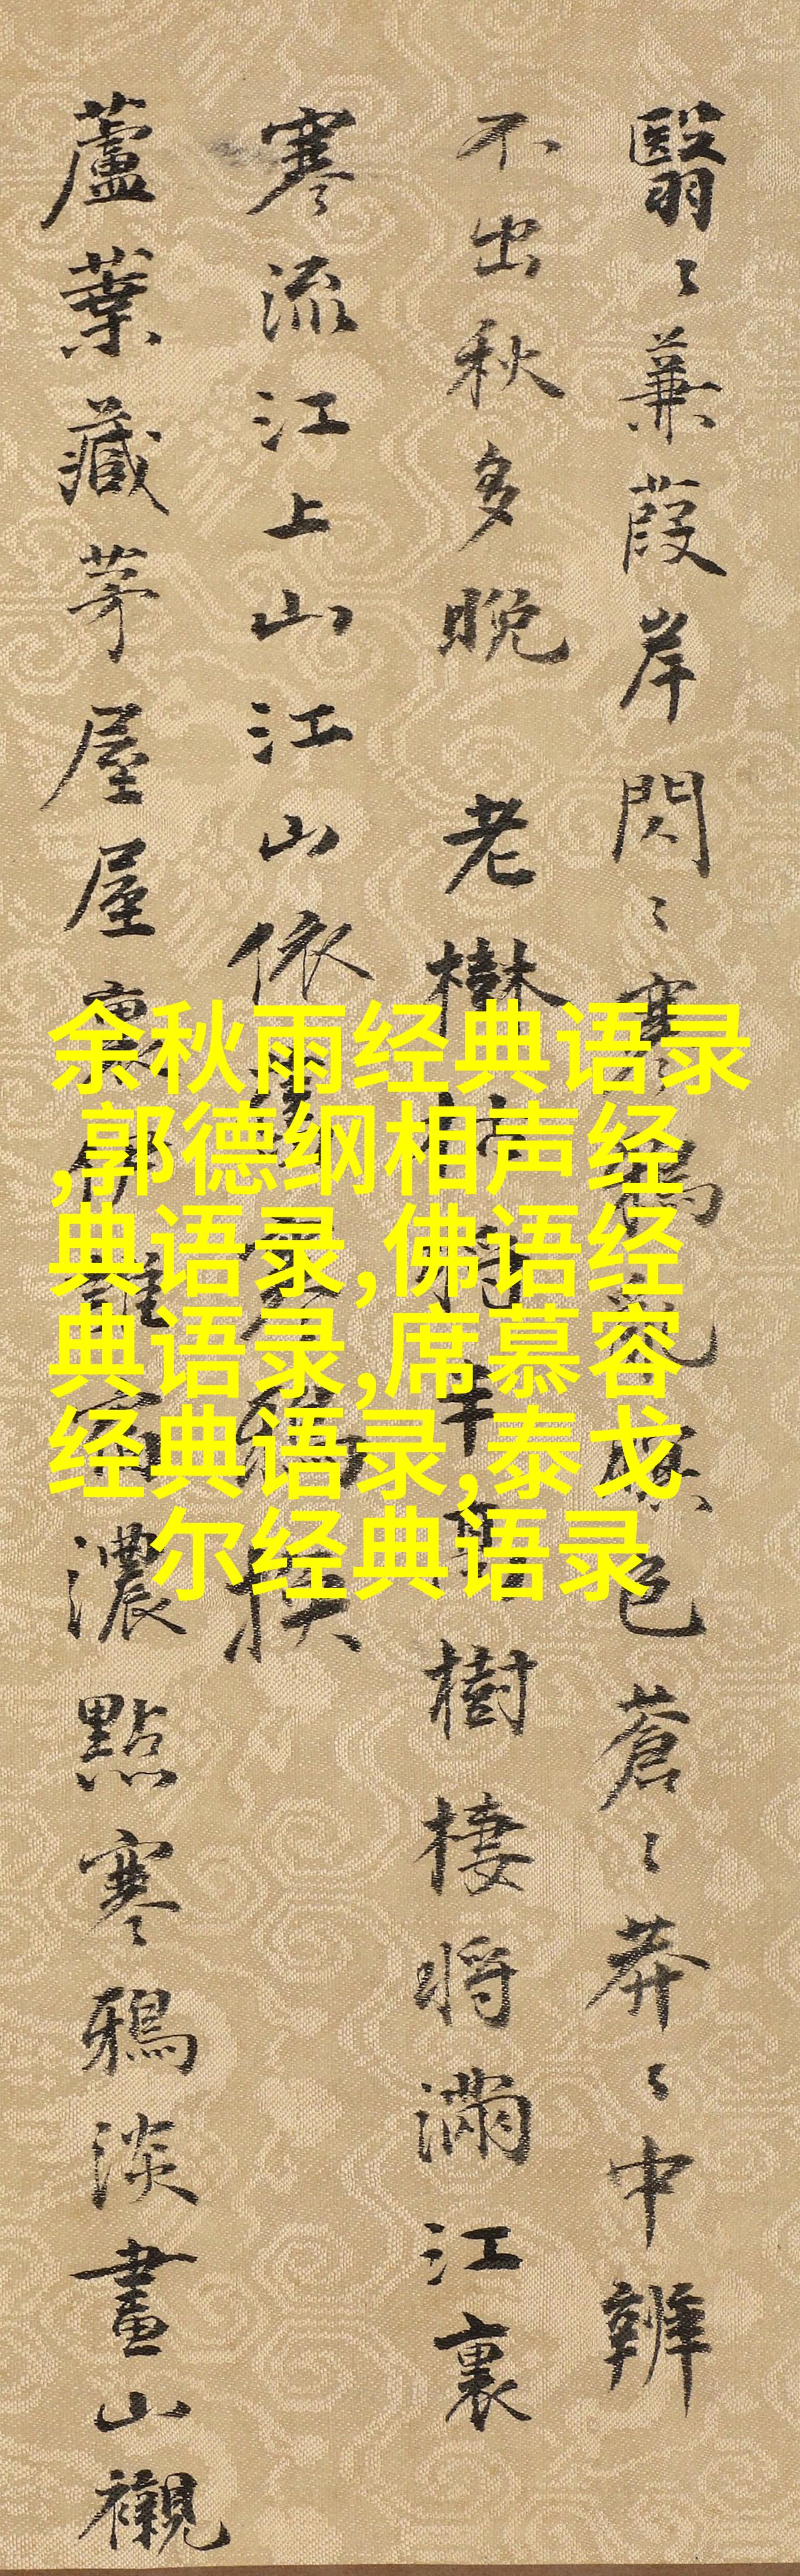 翳〻蒹葭岸閃〻寒鴉色蒼〻莽〻中辨
不出秋多晚 老樹枯將半樹棲將滿江裏
寒流江上山江山依鴉換
蘆葉藏茅屋屋裏伊誰宿濃點寒鴉淡畫山襯
余秋雨经典语录
,郭德纲相声经
典语录,佛语经
典语录,席慕容
经典语录,泰戈
尔经典语录